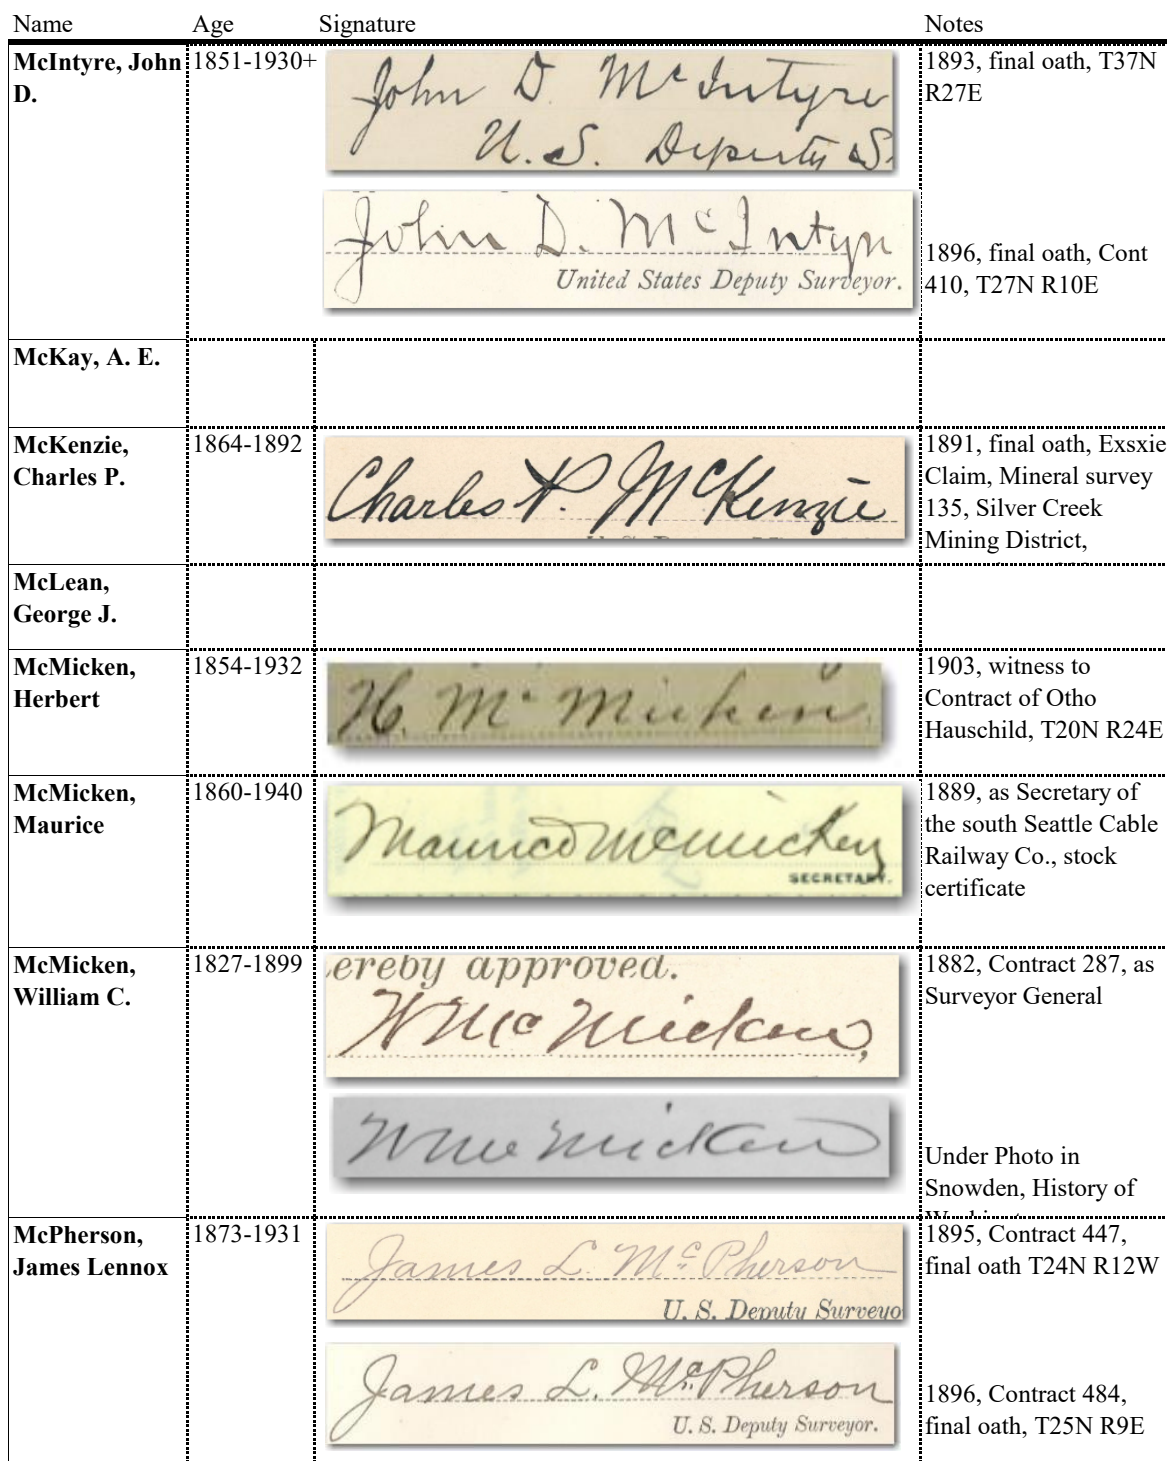 Name Age Signature Notes
McIntyre, John D.
1851-1930+
John D. McIntyre
U. S. Deputy S.
1893, final oath, T37N
R27E
John D. McIntyre
United States Deputy Surveyor.
1896, final oath, Cont
410, T27N R10E
McKay, A. E.
McKenzie,
Charles P.
1864-1892
Charles P. McKenzie
1891, final oath, Exsxie
Claim, Mineral survey
135, Silver Creek
Mining District,
McLean,
George J.
McMicken,
Herbert
1854-1932
H. McMicken
1903, witness to
Contract of Otho
Hauschild, T20N R24E
McMicken,
Maurice
1860-1940
Maurice McMicken
SECRETARY.
1889, as Secretary of
the south Seattle Cable
Railway Co., stock
certificate
McMicken,
William C.
1827-1899
ereby approved.
W McMicken,
1882, Contract 287, as
Surveyor General
W McMicken
Under Photo in
Snowden, History of
McPherson,
James Lennox
1873-1931
James L. McPherson
U. S. Deputy Surveyo
1895, Contract 447,
final oath T24N R12W
James L. McPherson
U. S. Deputy Surveyor.
1896, Contract 484,
final oath, T25N R9E